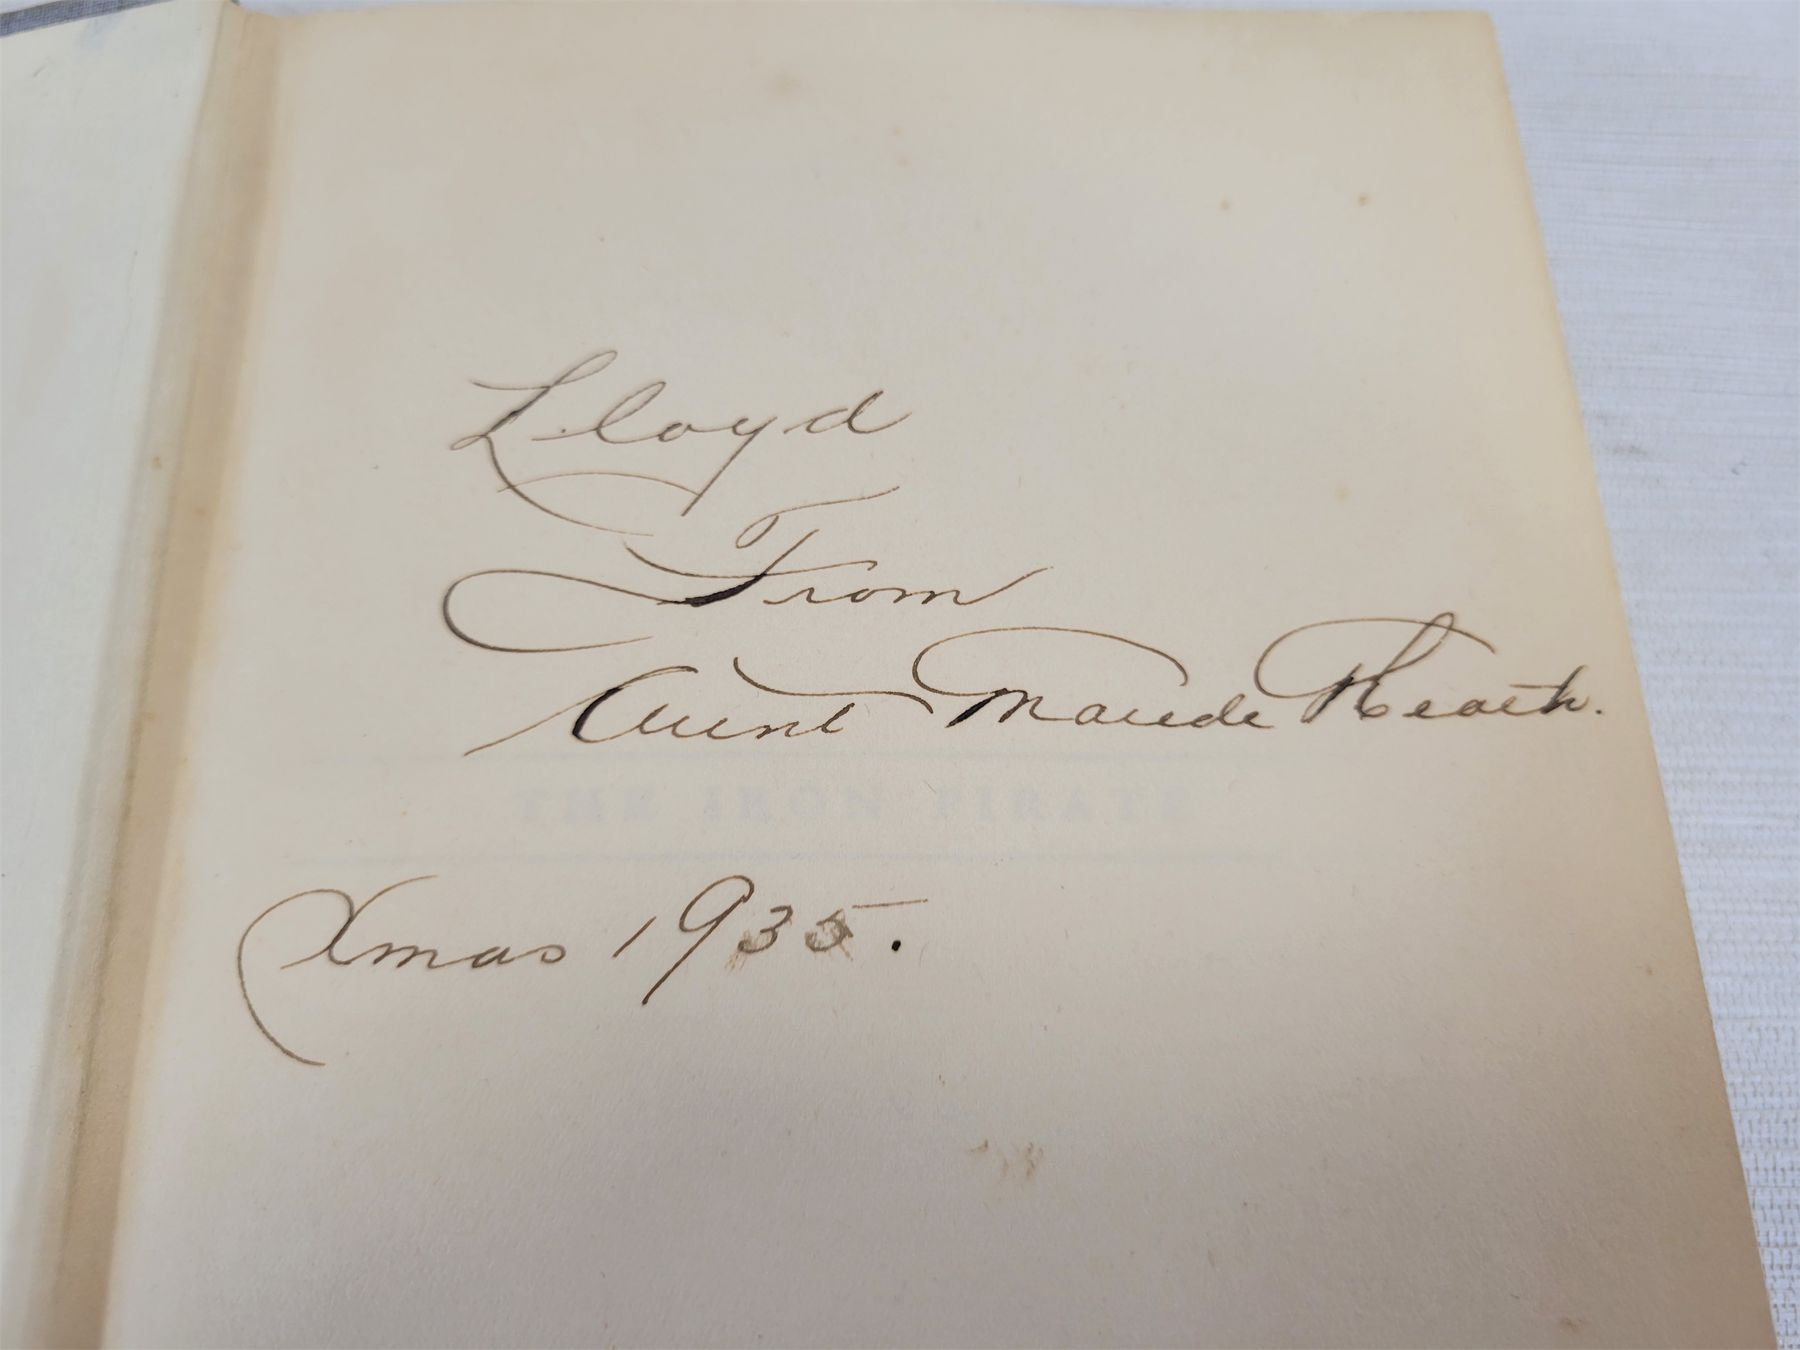 Lloyd
From
Aunt Maude Heath.
THE IRON PIRATE
Xmas 1935.